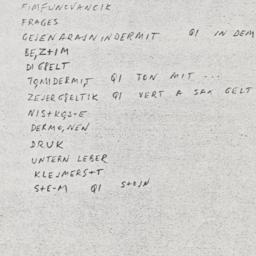 FIMFUNOVANCIK
FRAGES
GEJENARAJNINDERMIT QI IN DEM
BE,Z+IM
DI GELT
TOMIDERMIT QI TON MIT ...
ZEJERGELTIK QI VERT A SAX GELT
NIS+KGJ-E
DERMO,NEN
DRUK
UNTERN LEBER
KLEJMERS+T
S+E-M QI S+OJN